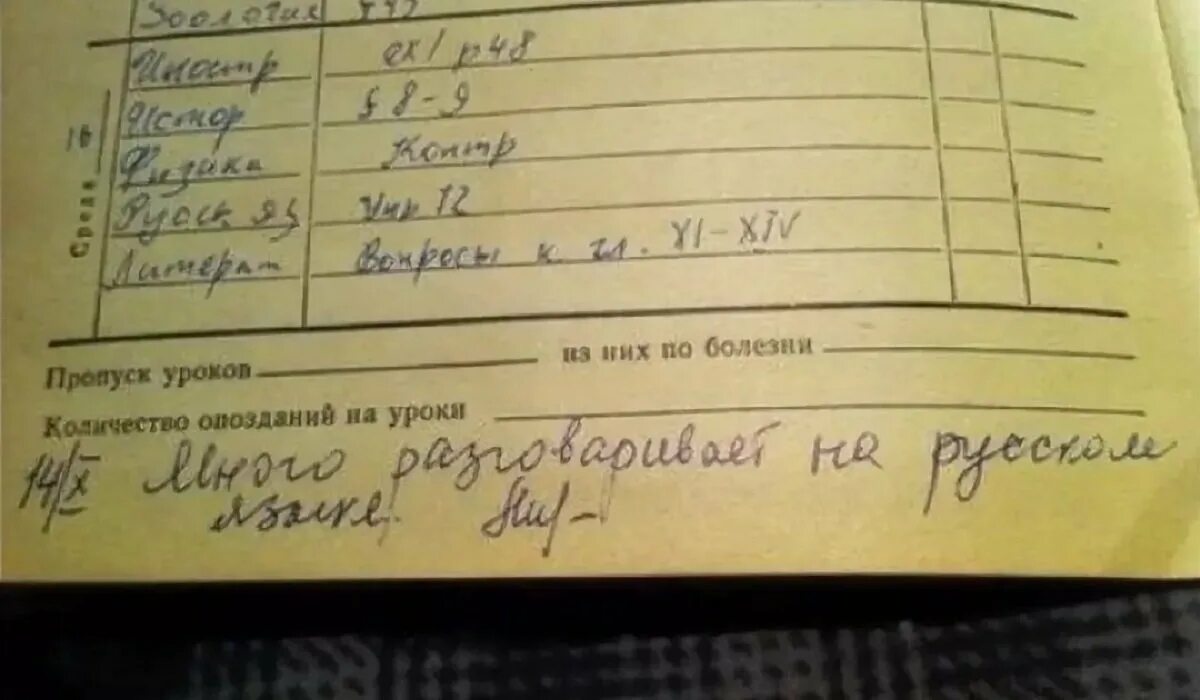 Зоология
Иностр ex 1 p 48
Истор § 8-9
Физика Контр
Русск яз Упр 12
Литерат Вопросы к гл. XI-XIV
Среда 16
Пропуск уроков из них по болезни
Количество опозданий на уроки
14/X Много разговаривает на русском
языке.